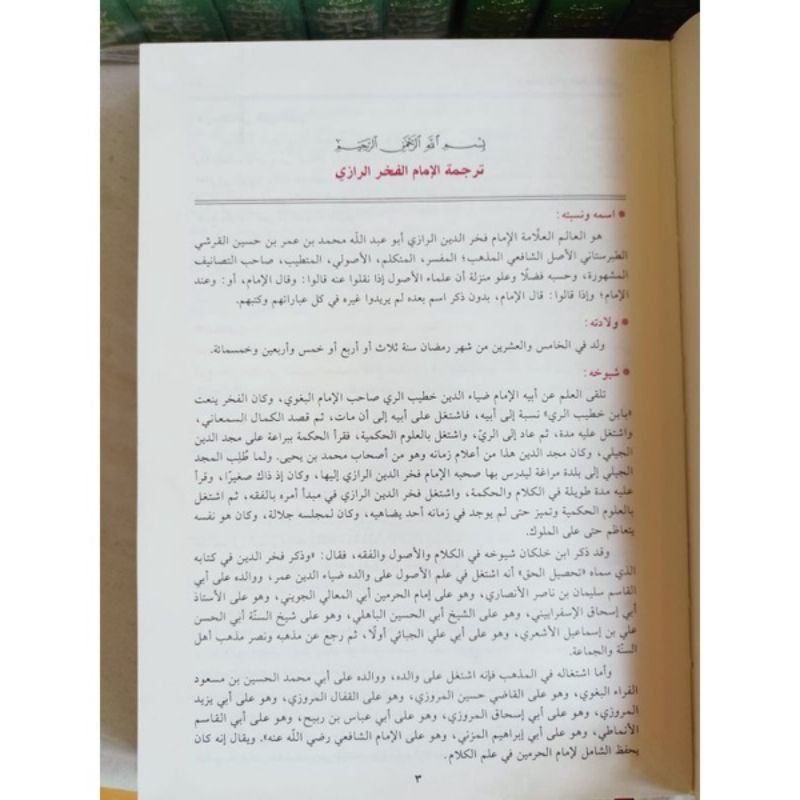 بسم الله الرحمن الرحيم
ترجمة الإمام الفخر الرازي
● اسمه ونسبته:
هو العالم العلّامة الإمام فخر الدين الرازي أبو عبد اللّه محمد بن عمر بن حسين القرشي
الطبرستاني الأصل الشافعي المذهب؛ المفسر، المتكلم، الأصولي، المتطيب، صاحب التصانيف
المشهورة، وحسبه فضلًا وعلو منزلة أن علماء الأصول إذا نقلوا عنه قالوا: وقال الإمام، أو: وعند
الإمام؛ وإذا قالوا: قال الإمام، بدون ذكر اسم بعده لم يريدوا غيره في كل عباراتهم وكتبهم.
● ولادته:
ولد في الخامس والعشرين من شهر رمضان سنة ثلاث أو أربع أو خمس وأربعين وخمسمائة.
● شيوخه:
تلقى العلم عن أبيه الإمام ضياء الدين خطيب الري صاحب الإمام البغوي، وكان الفخر ينعت
«بابن خطيب الري» نسبة إلى أبيه، فاشتغل على أبيه إلى أن مات، ثم قصد الكمال السمعاني،
واشتغل عليه مدة، ثم عاد إلى الريّ، واشتغل بالعلوم الحكمية، فقرأ الحكمة ببراعة على مجد الدين
الجيلي، وكان مجد الدين هذا من أعلام زمانه وهو من أصحاب محمد بن يحيى. ولما طُلِب المجد
الجيلي إلى بلدة مراغة ليدرس بها صحبه الإمام فخر الدين الرازي إليها، وكان إذ ذاك صغيرًا، وقرأ
عليه مدة طويلة في الكلام والحكمة، واشتغل فخر الدين الرازي في مبدأ أمره بالفقه، ثم اشتغل
بالعلوم الحكمية وتميز حتى لم يوجد في زمانه أحد يضاهيه، وكان لمجلسه جلالة، وكان هو نفسه
يتعاظم حتى على الملوك.
وقد ذكر ابن خلكان شيوخه في الكلام والأصول والفقه، فقال: «وذكر فخر الدين في كتابه
الذي سماه «تحصيل الحق» أنه اشتغل في علم الأصول على والده ضياء الدين عمر، ووالده على أبي
القاسم سليمان بن ناصر الأنصاري، وهو على إمام الحرمين أبي المعالي الجويني، وهو على الأستاذ
أبي إسحاق الإسفراييني، وهو على الشيخ أبي الحسين الباهلي، وهو على شيخ السنّة أبي الحسن
علي بن إسماعيل الأشعري، وهو على أبي علي الجبائي أولًا، ثم رجع عن مذهبه ونصر مذهب أهل
السنّة والجماعة.
وأما اشتغاله في المذهب فإنه اشتغل على والده، ووالده على أبي محمد الحسين بن مسعود
الفراء البغوي، وهو على القاضي حسين المروزي، وهو على القفال المروزي، وهو على أبي يزيد
المروزي، وهو على أبي إسحاق المروزي، وهو على أبي عباس بن ربيح، وهو على أبي القاسم
الأنماطي، وهو على أبي إبراهيم المزني، وهو على الإمام الشافعي رضي اللّه عنه». ويقال إنه كان
يحفظ الشامل لإمام الحرمين في علم الكلام.
٣